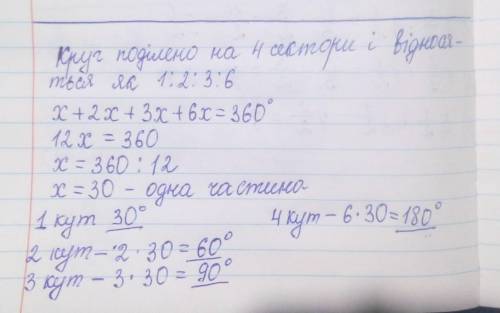 Круг поділено на 4 сектори і віднося-
ться як 1:2:3:6
x+2x+3x+6x=360°
12x = 360
x = 360 : 12
x = 30 - одна частина
1 кут 30°
4 кут – 6·30=180°
2 кут – 2·30 = 60°
3 кут – 3·30 = 90°